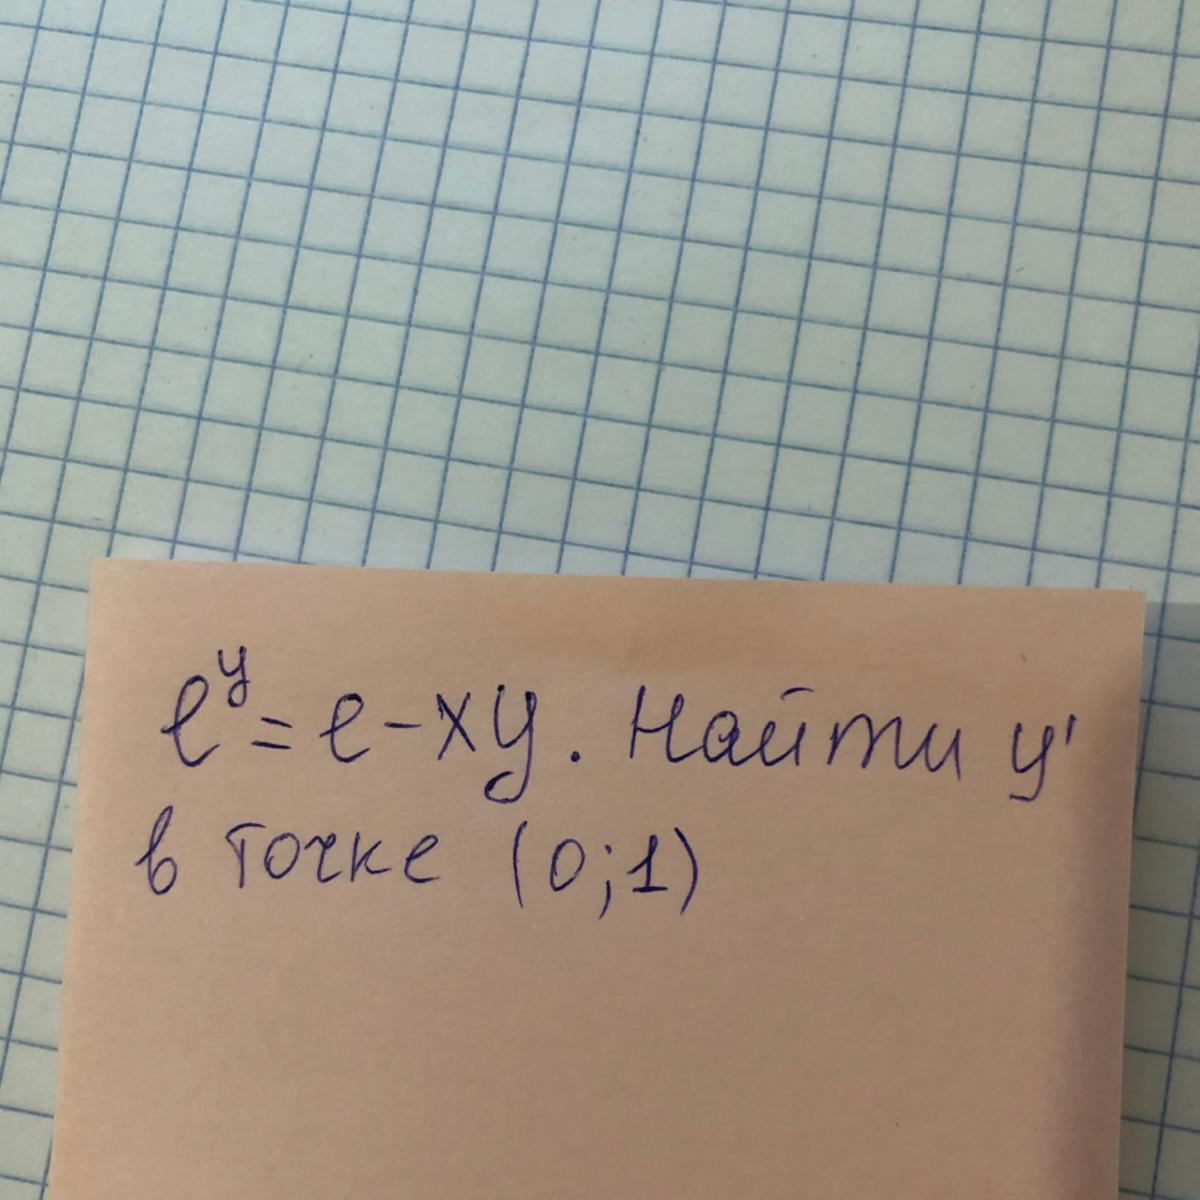 e^y = e - xy. Найти y'
в точке (0;1)